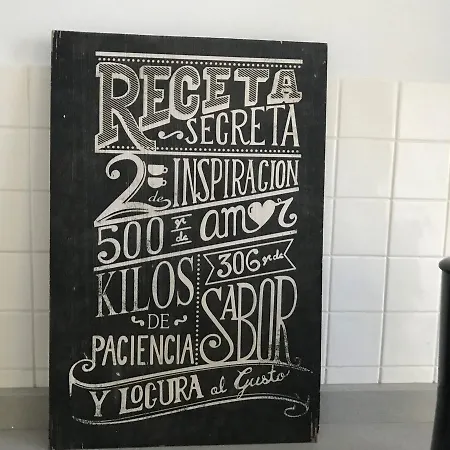 RECETA
SECRETA
2 de INSPIRACION
500 gr de amor
KILOS
DE
PACIENCIA
306 gr de
SABOR
Y LOCURA al Gusto